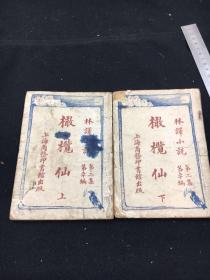 林譯小說
第二集
第 編
橄欖仙
下
上海商務印書館出版
林譯
第二集
第 編
橄欖仙
上
上海商務印書館出版